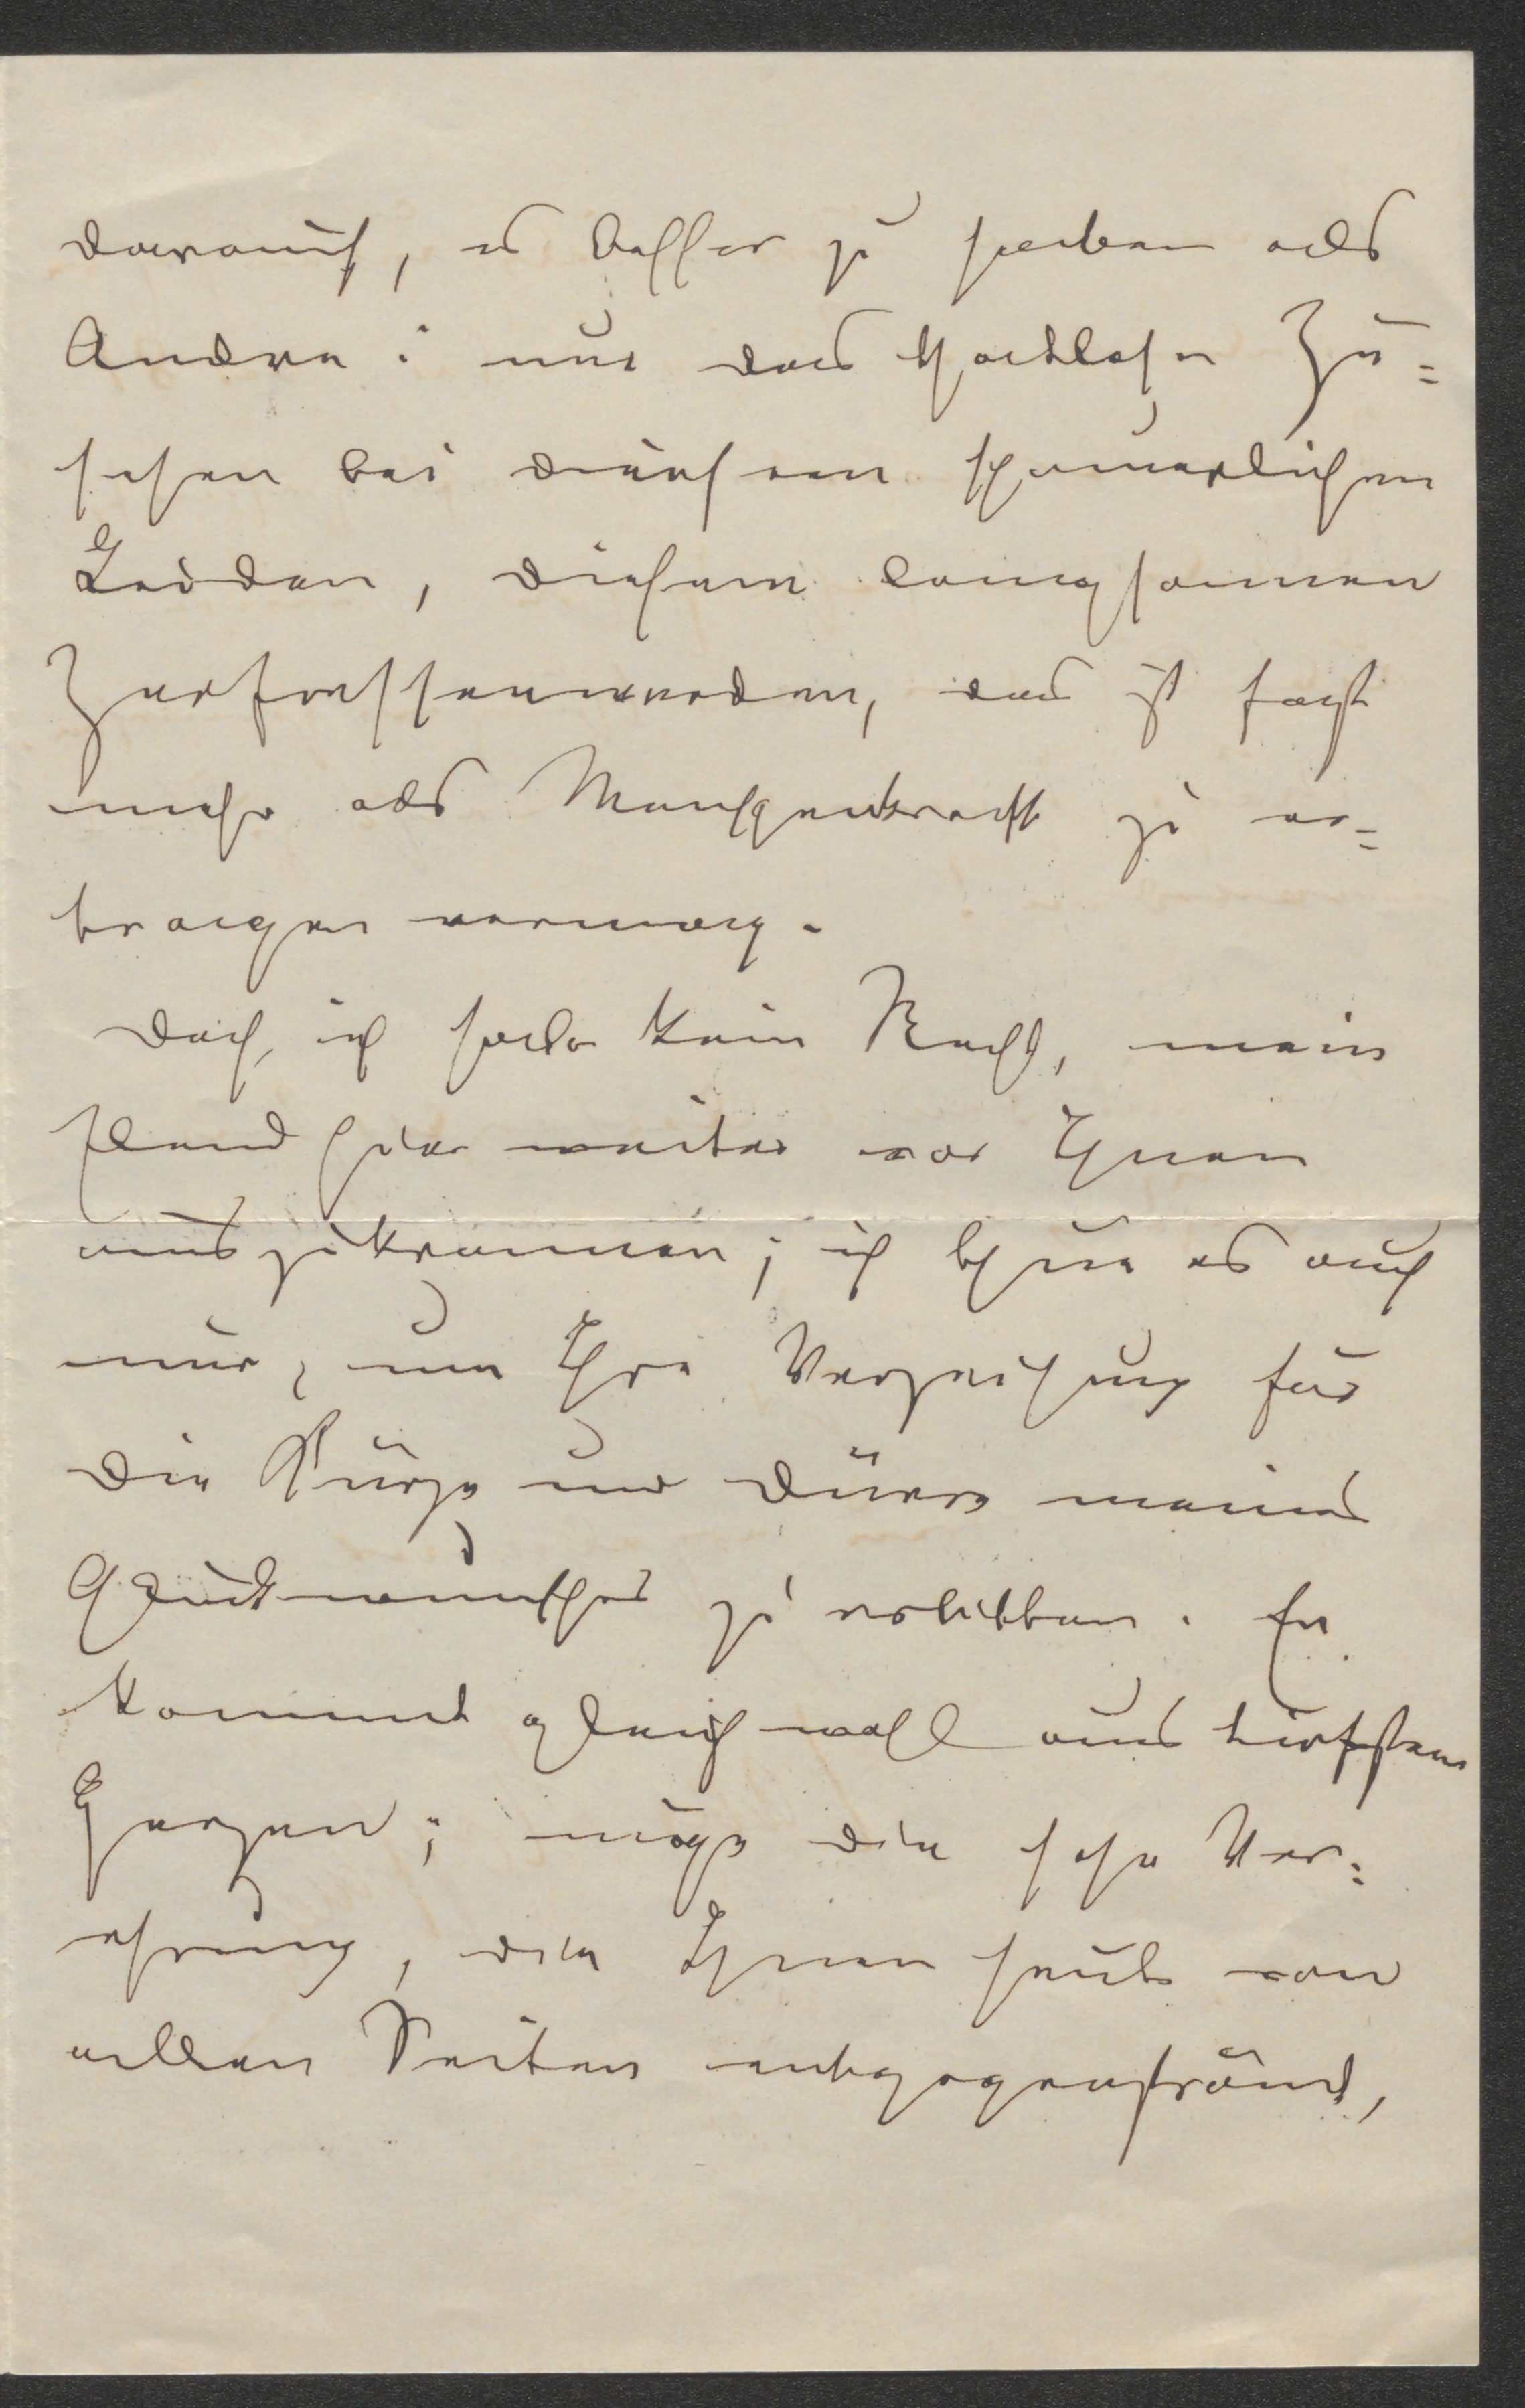 darauf, es besser zu haben als
Andre: nur das thatlose Zu=
sehen bei diesem schauerlichen
Leiden, diesem langsamen
Zerfressenwerden, das ist fast
mehr als Menschenkraft zu er=
tragen vermag.
Doch, ich habe kein Recht, mein
Elend hier weiter vor Ihnen
auszukramen; ich thue es auch
nur, um Ihre Verzeihung für
die Kürze und Dürre meines
Glückwunsches zu erbitten. Er
kommt gleichwohl aus tiefstem
Herzen; möge die hohe Ver=
ehrung, die Ihnen heute von
allen Seiten entgegenströmt,